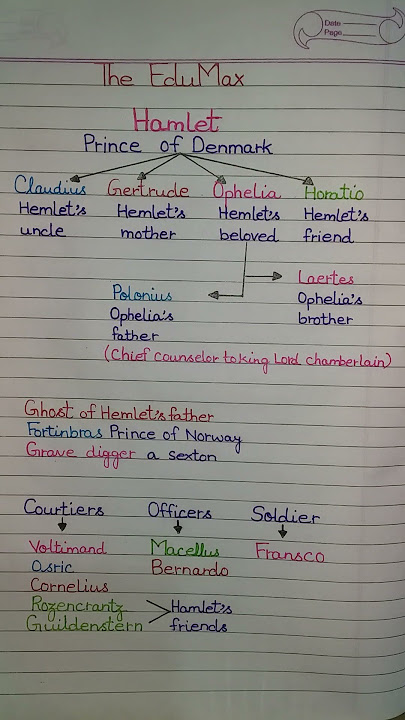 Date
Page
The EduMax
Hamlet
Prince of Denmark
Claudius Gertrude Ophelia Horatio
Hemlet's Hemlet's Hemlet's Hemlet's
uncle mother beloved friend
Laertes
Polonius Ophelia's
Ophelia's brother
father
(Chief counselor to king Lord chamberlain)
Ghost of Hemlet's father
Fortinbras Prince of Norway
Grave digger a sexton
Courtiers Officers Soldier
Voltimand Macellus Fransco
Osric Bernardo
Cornelius
Rozencrantz Hamlet's
Guildenstern friends